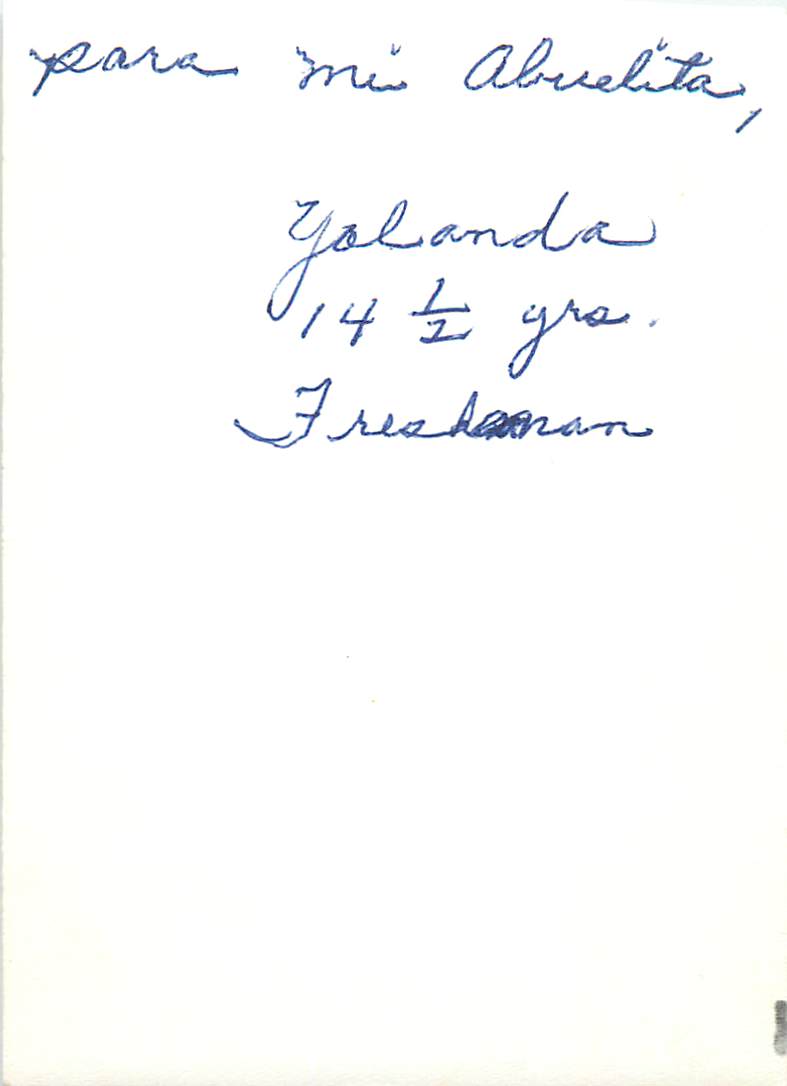 para mi Abuelita,
Yolanda
14 1/2 yrs.
Freshman